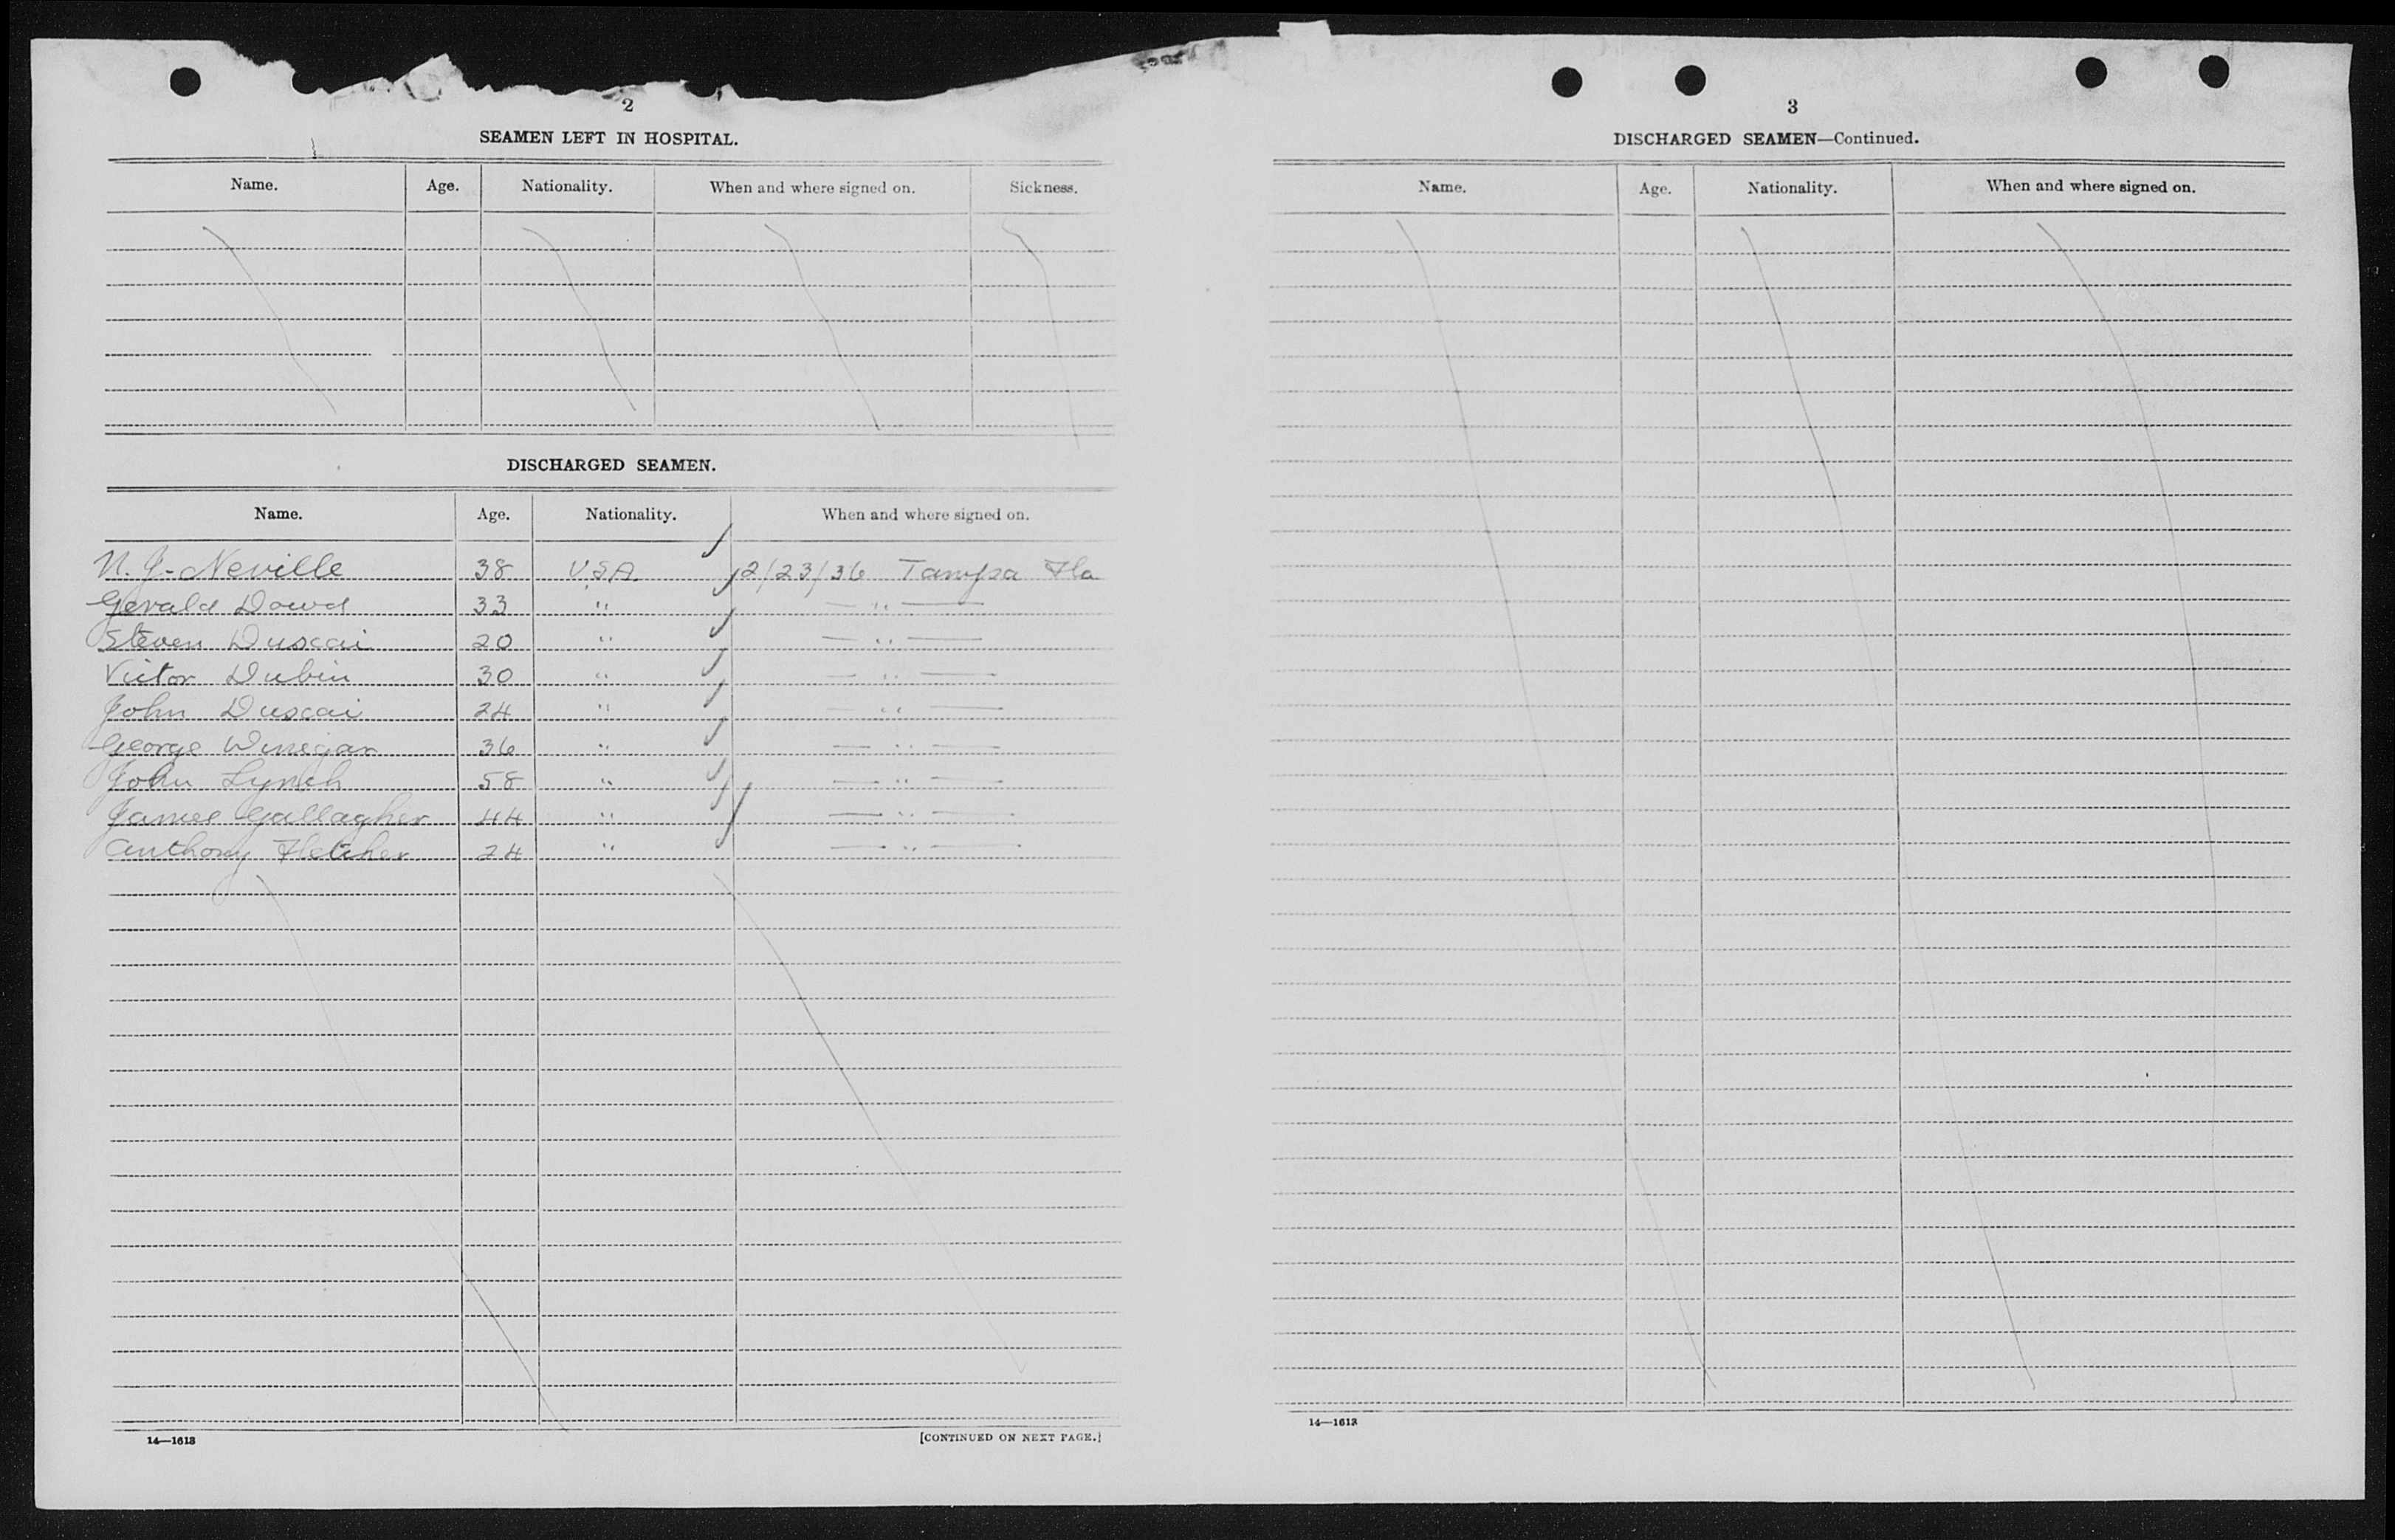 2
SEAMEN LEFT IN HOSPITAL.
Name. Age. Nationality. When and where signed on. Sickness.
DISCHARGED SEAMEN.
Name. Age. Nationality. When and where signed on.
N. J. Neville 38 USA 2/23/36 Tampa Fla
Gerald Dowd 33 " — " —
Steven Duscai 20 " — " —
Victor Dubin 30 " — " —
John Duscai 24 " — " —
George Winegar 36 " — " —
John Lynch 58 " — " —
James Gallagher 44 " — " —
Anthony Fletcher 24 " — " —
14—1613
[CONTINUED ON NEXT PAGE.]
3
DISCHARGED SEAMEN—Continued.
Name. Age. Nationality. When and where signed on.
14—1613